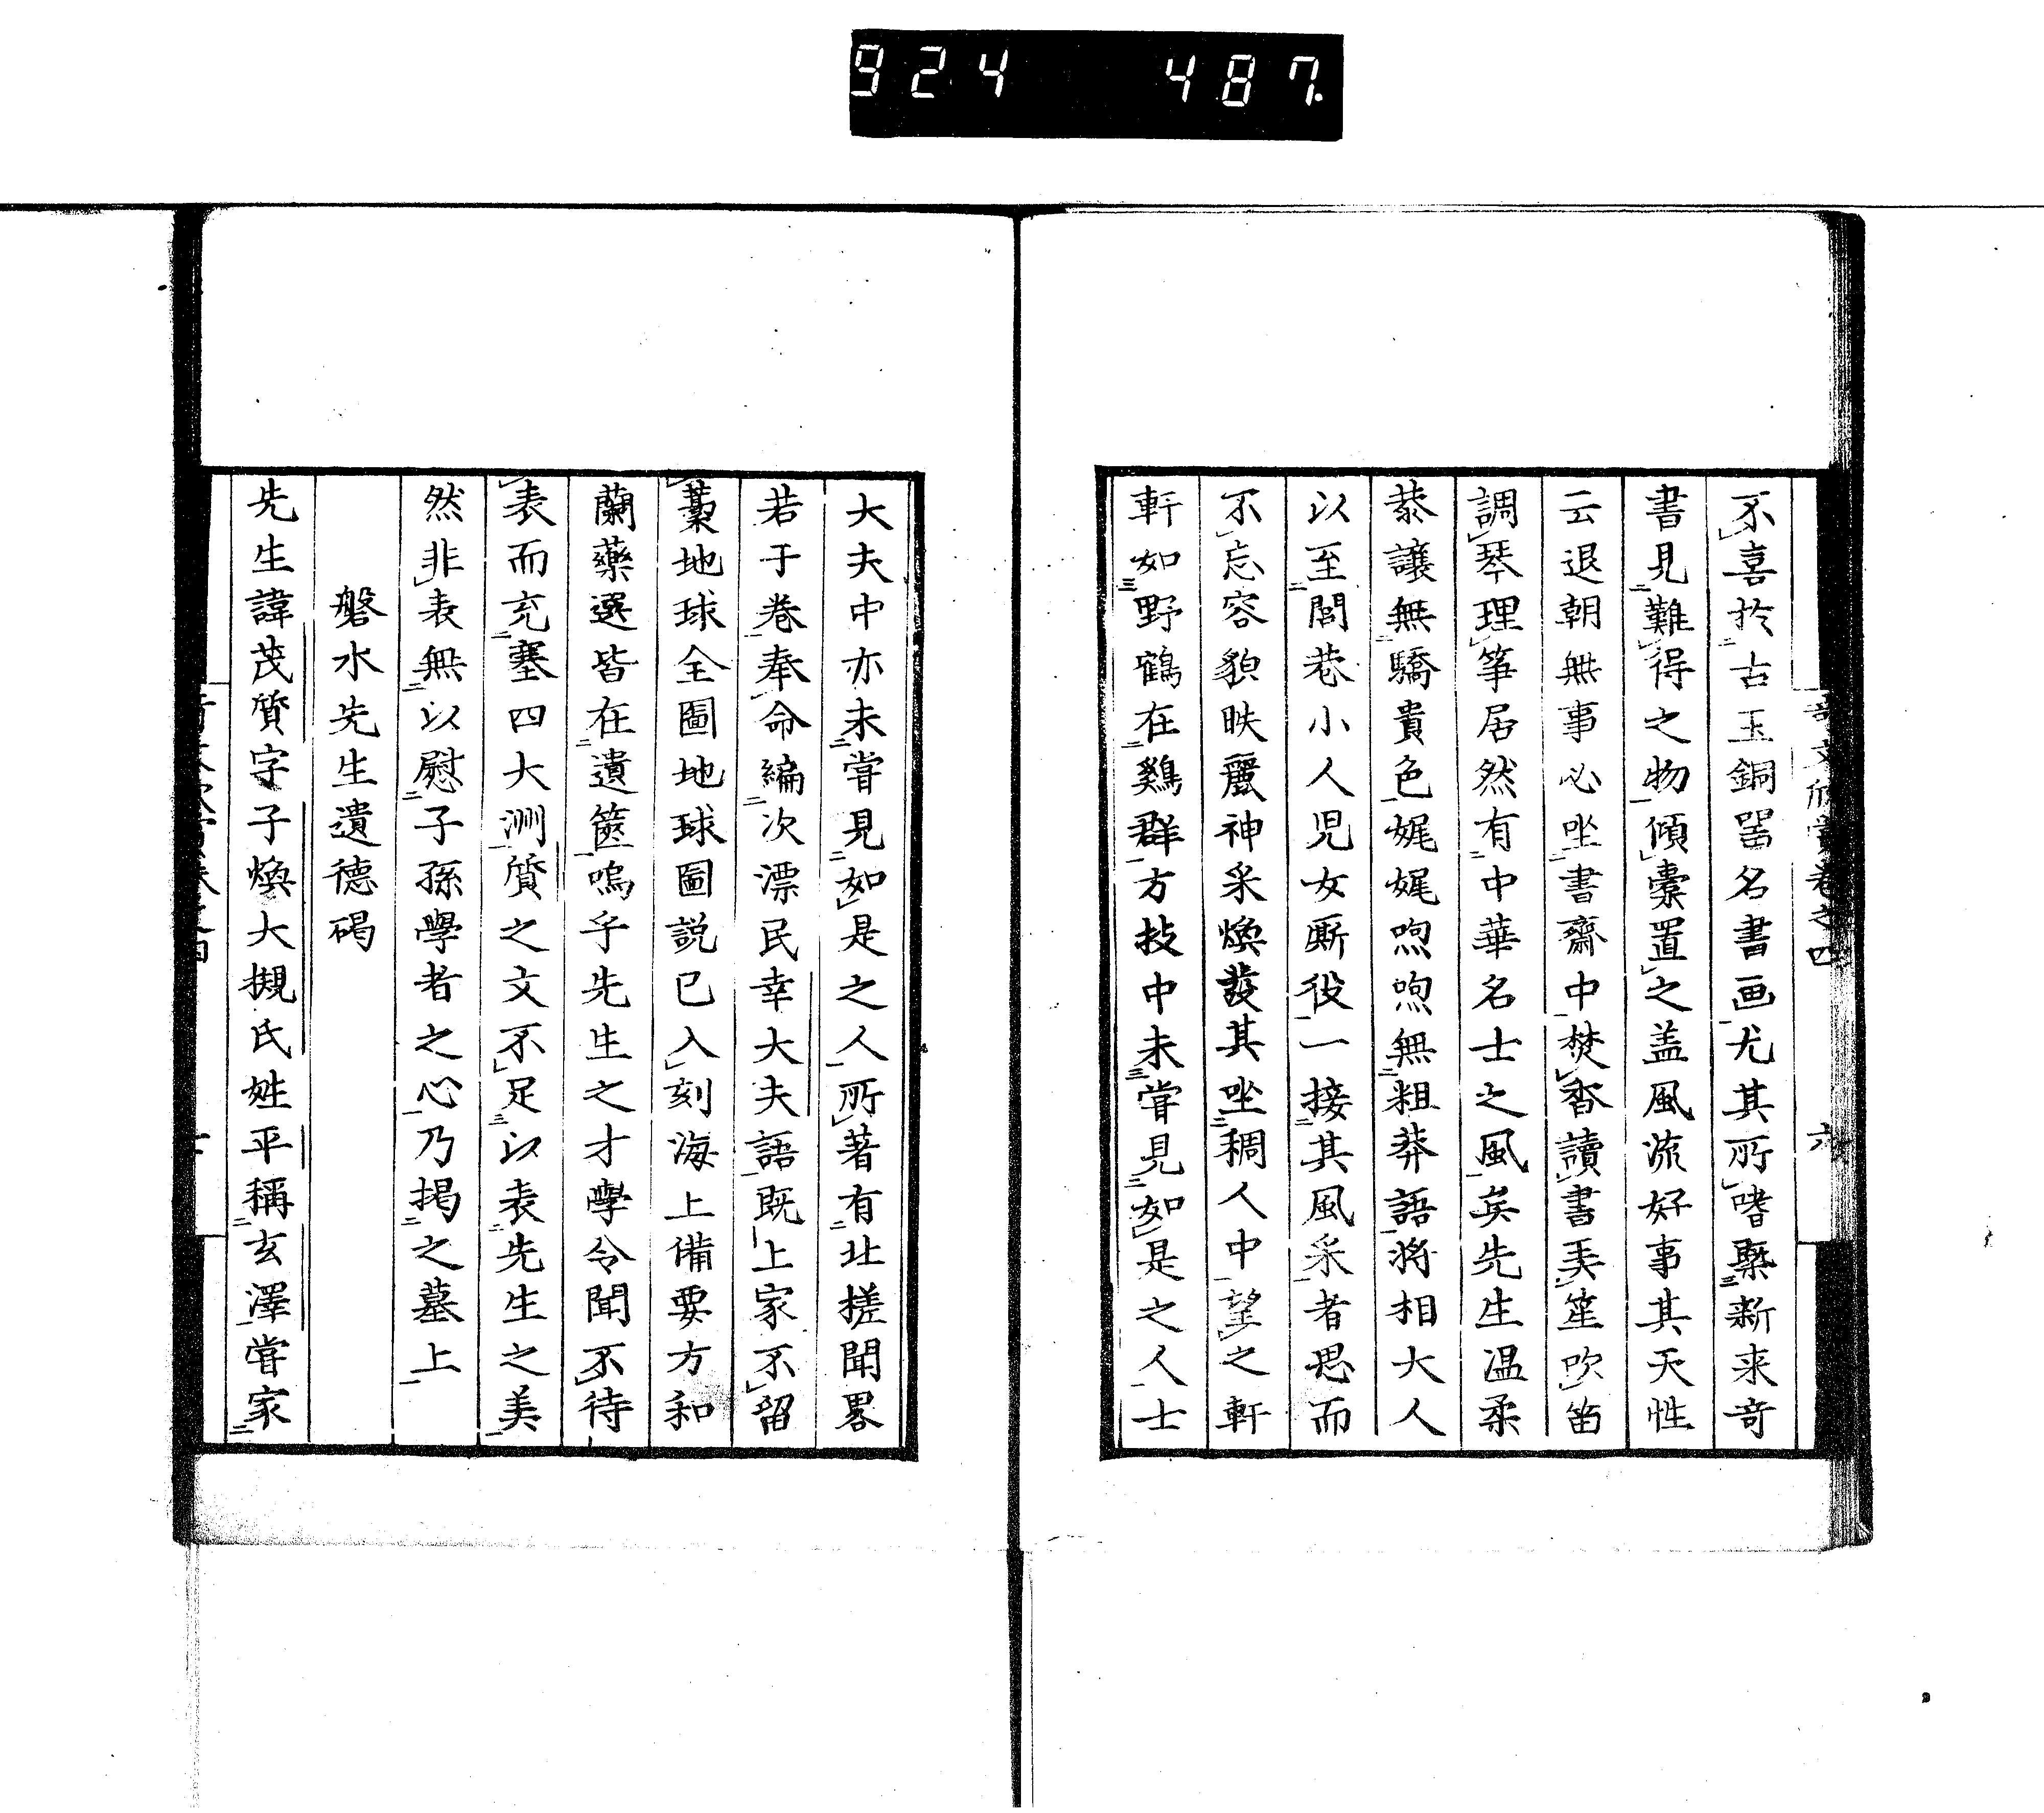 924 487.
不喜於古玉銅噐名書画尤其所嗜槧新来竒
書見難得之物傾囊置之盖風流好事其天性
云退朝無事必坐書齋中焚香讀書美笙吹笛
調琴理筝居然有中華名士之風矣先生温柔
恭讓無驕貴色娓娓喣喣無粗莽語將相大人
以至閭巷小人児女厮役一接其風采者思而
不忘容貌昳麗神采煥發其坐稠人中望之軒
軒如野鶴在鷄群方技中未嘗見如是之人士
大夫中亦未嘗見如是之人所著有北槎聞畧
若干卷奉命編次漂民幸大夫語既上家不留
藁地球全圖地球圖説已入刻海上備要方和
蘭藥選皆在遺篋嗚乎先生之才學令聞不待
表而充塞四大洲質之文不足以表先生之美
然非表無以慰子孫學者之心乃掲之墓上
磐水先生遺徳碣
先生諱茂質字子煥大槻氏姓平稱玄澤嘗家